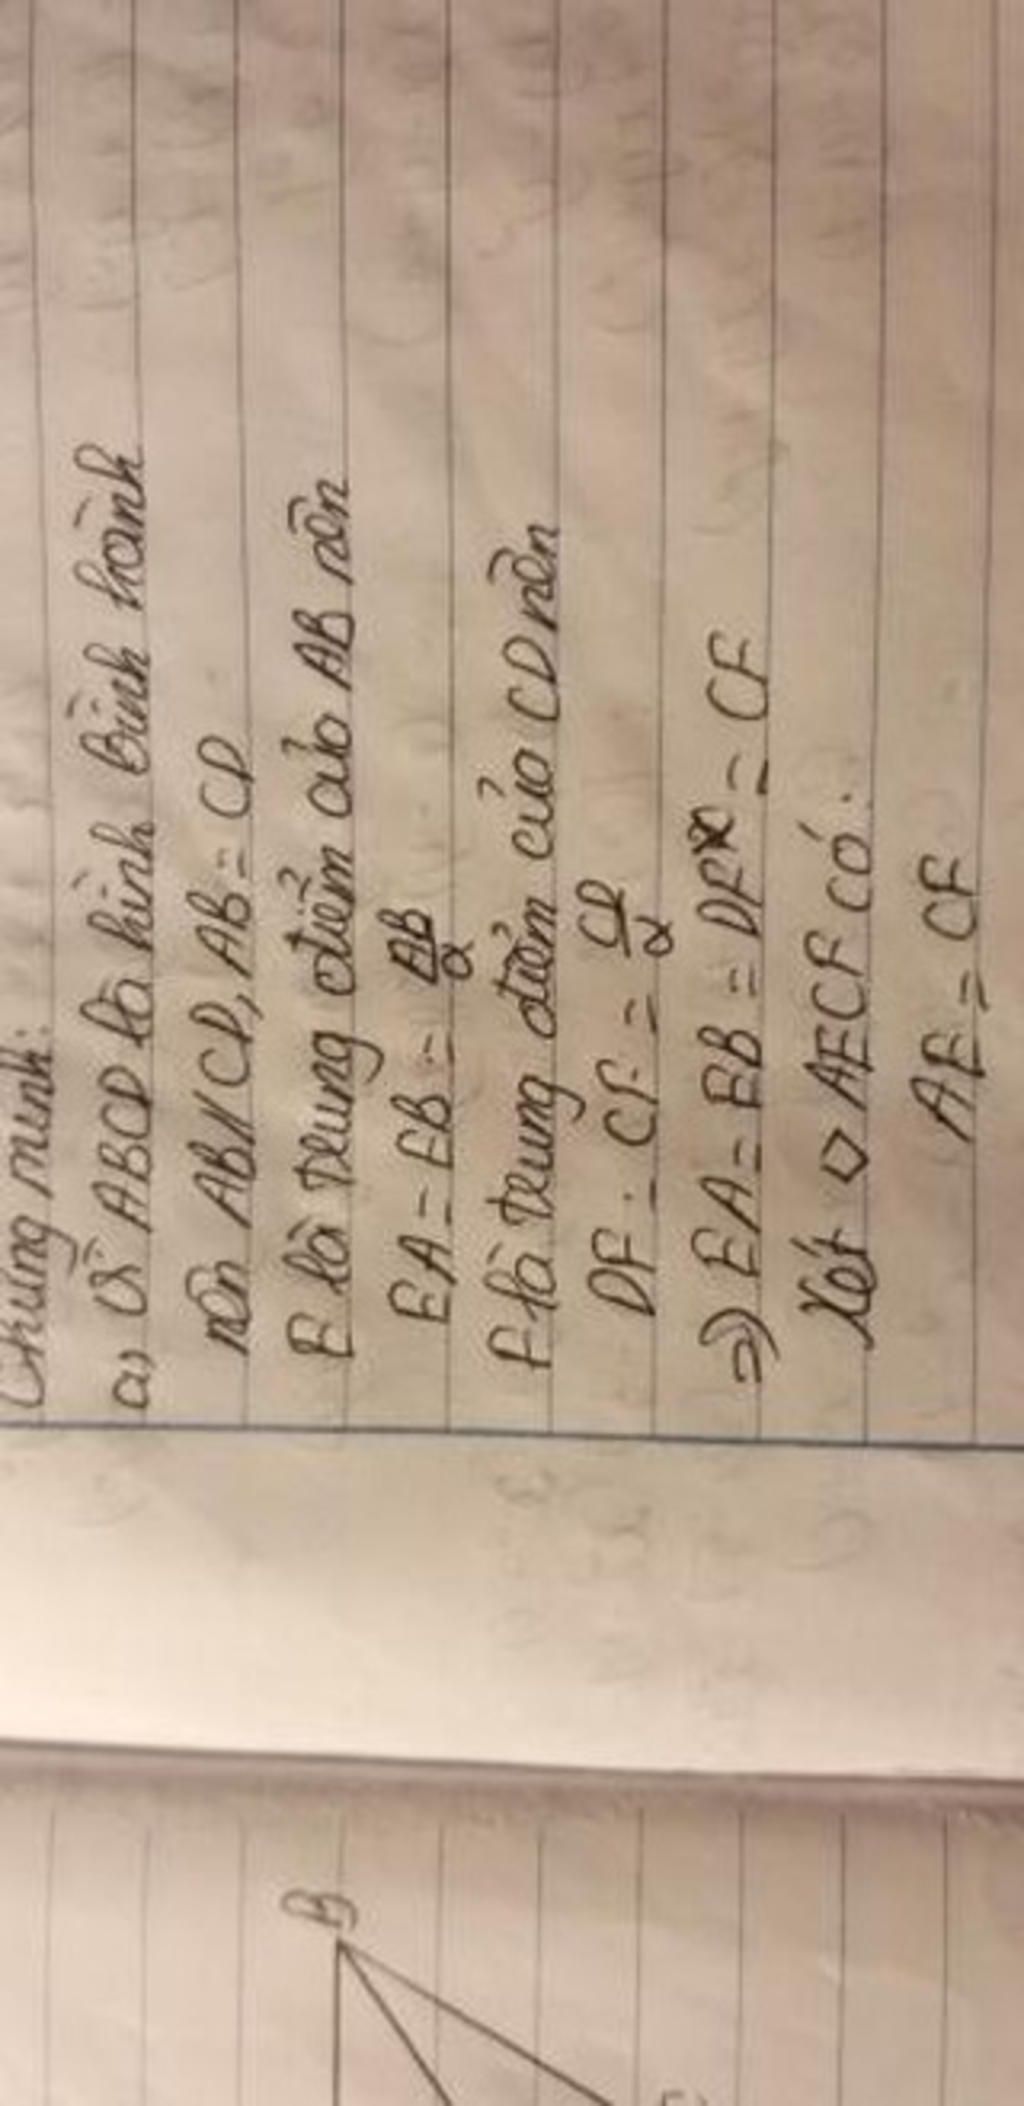 Chứng minh:
a) Vì ABCD là hình Bình hành
nên AB // CD, AB = CD
E là trung điểm của AB nên
EA = EB = AB/2
F là trung điểm của CD nên
DF = CF = CD/2
=> EA = EB = DF = CF
Xét ◇ AECF có:
AE = CF
B